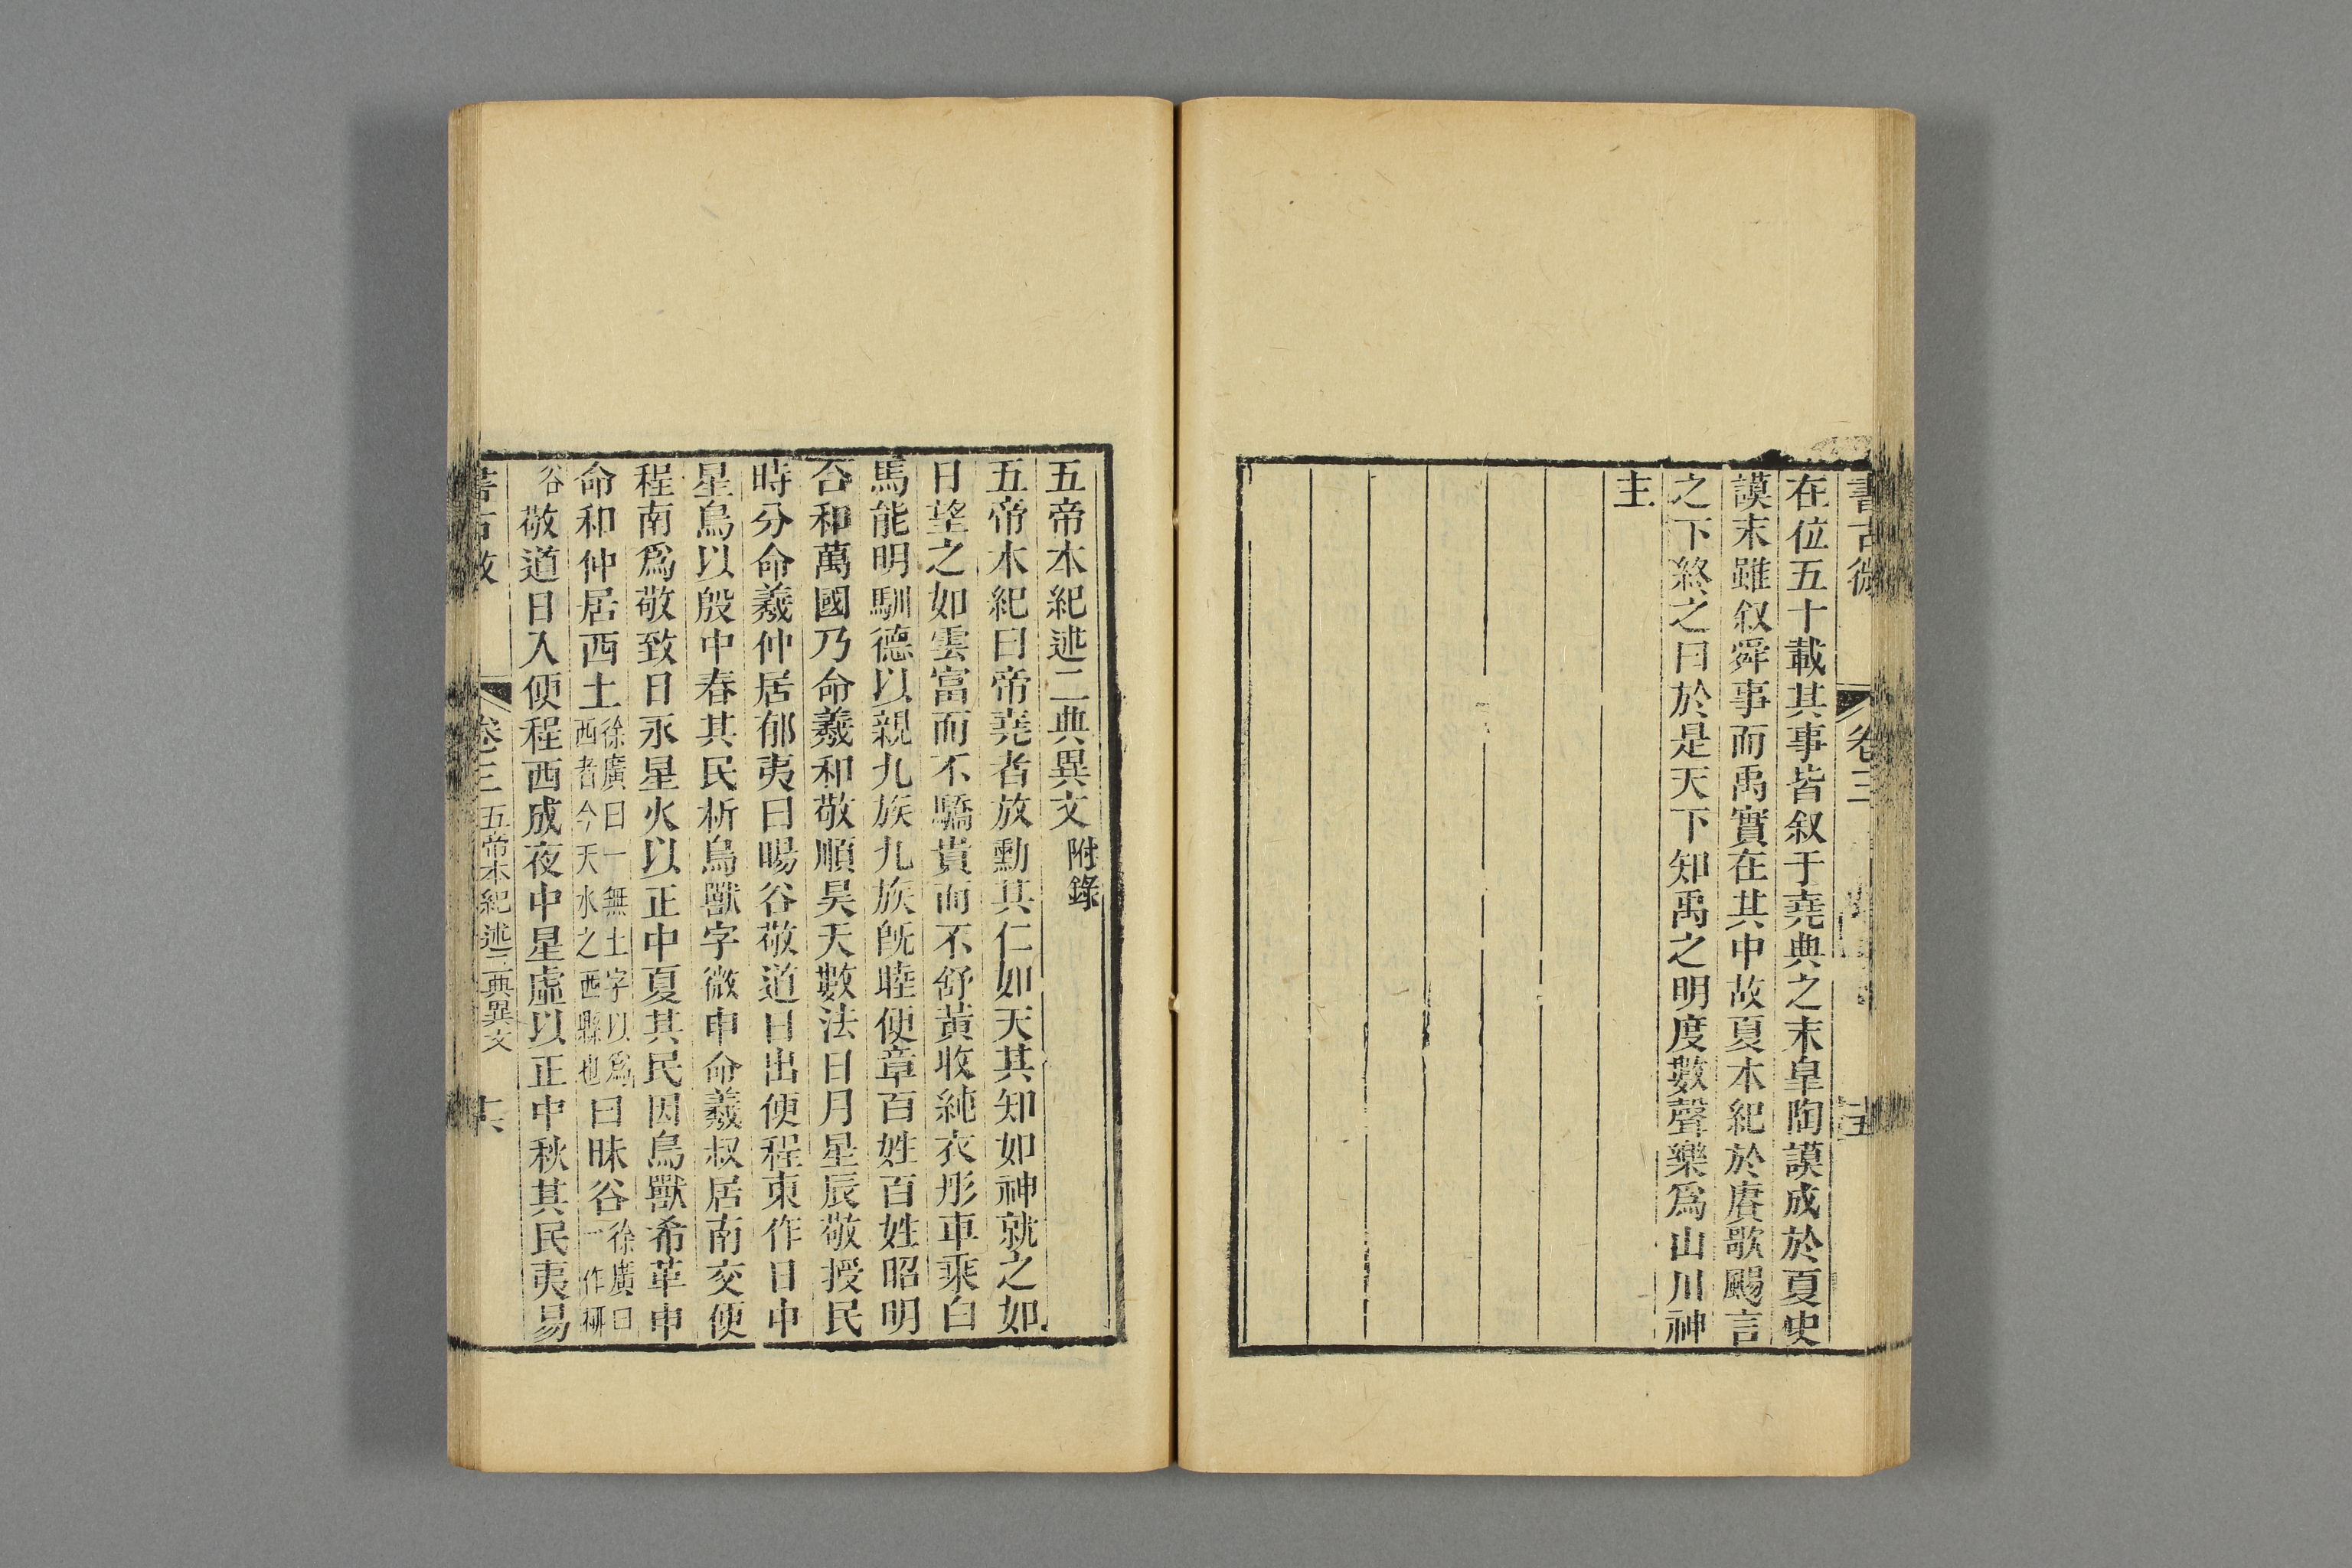 書古微 卷三
在位五十載其事皆叙于堯典之末皐陶謨成於夏史
謨末雖叙舜事而禹實在其中故夏本紀於賡歌颺言
之下終之曰於是天下知禹之明度數聲樂爲山川神
主
五帝本紀述二典異文附錄
五帝本紀曰帝堯者放勳其仁如天其知如神就之如
日望之如雲富而不驕貴而不舒黃收純衣彤車乘白
馬能明馴德以親九族九族旣睦便章百姓百姓昭明
合和萬國乃命羲和敬順昊天數法日月星辰敬授民
時分命羲仲居郁夷曰暘谷敬道日出便程東作日中
星鳥以殷中春其民析鳥獸字微申命羲叔居南交便
程南爲敬致日永星火以正中夏其民因鳥獸希革申
命和仲居西土徐廣曰一無土字以爲西者今天水之西縣也曰昧谷徐廣曰一作柳
谷敬道日入便程西成夜中星虛以正中秋其民夷易
書古微 卷三 五帝本紀述二典異文 十六